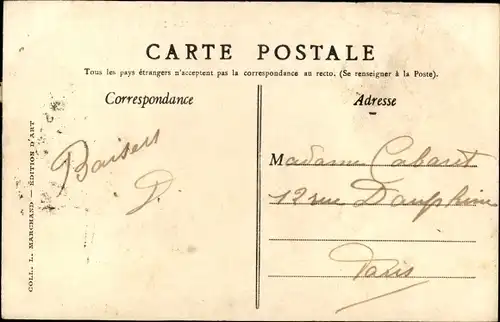 CARTE POSTALE
Tous les pays étrangers n'acceptent pas la correspondance au recto. (Se renseigner à la Poste).
Correspondance
Baisers
D.
COLL. L. MARCHAND — ÉDITION D'ART
Adresse
Madame Cabaret
12 rue Dauphine
Paris